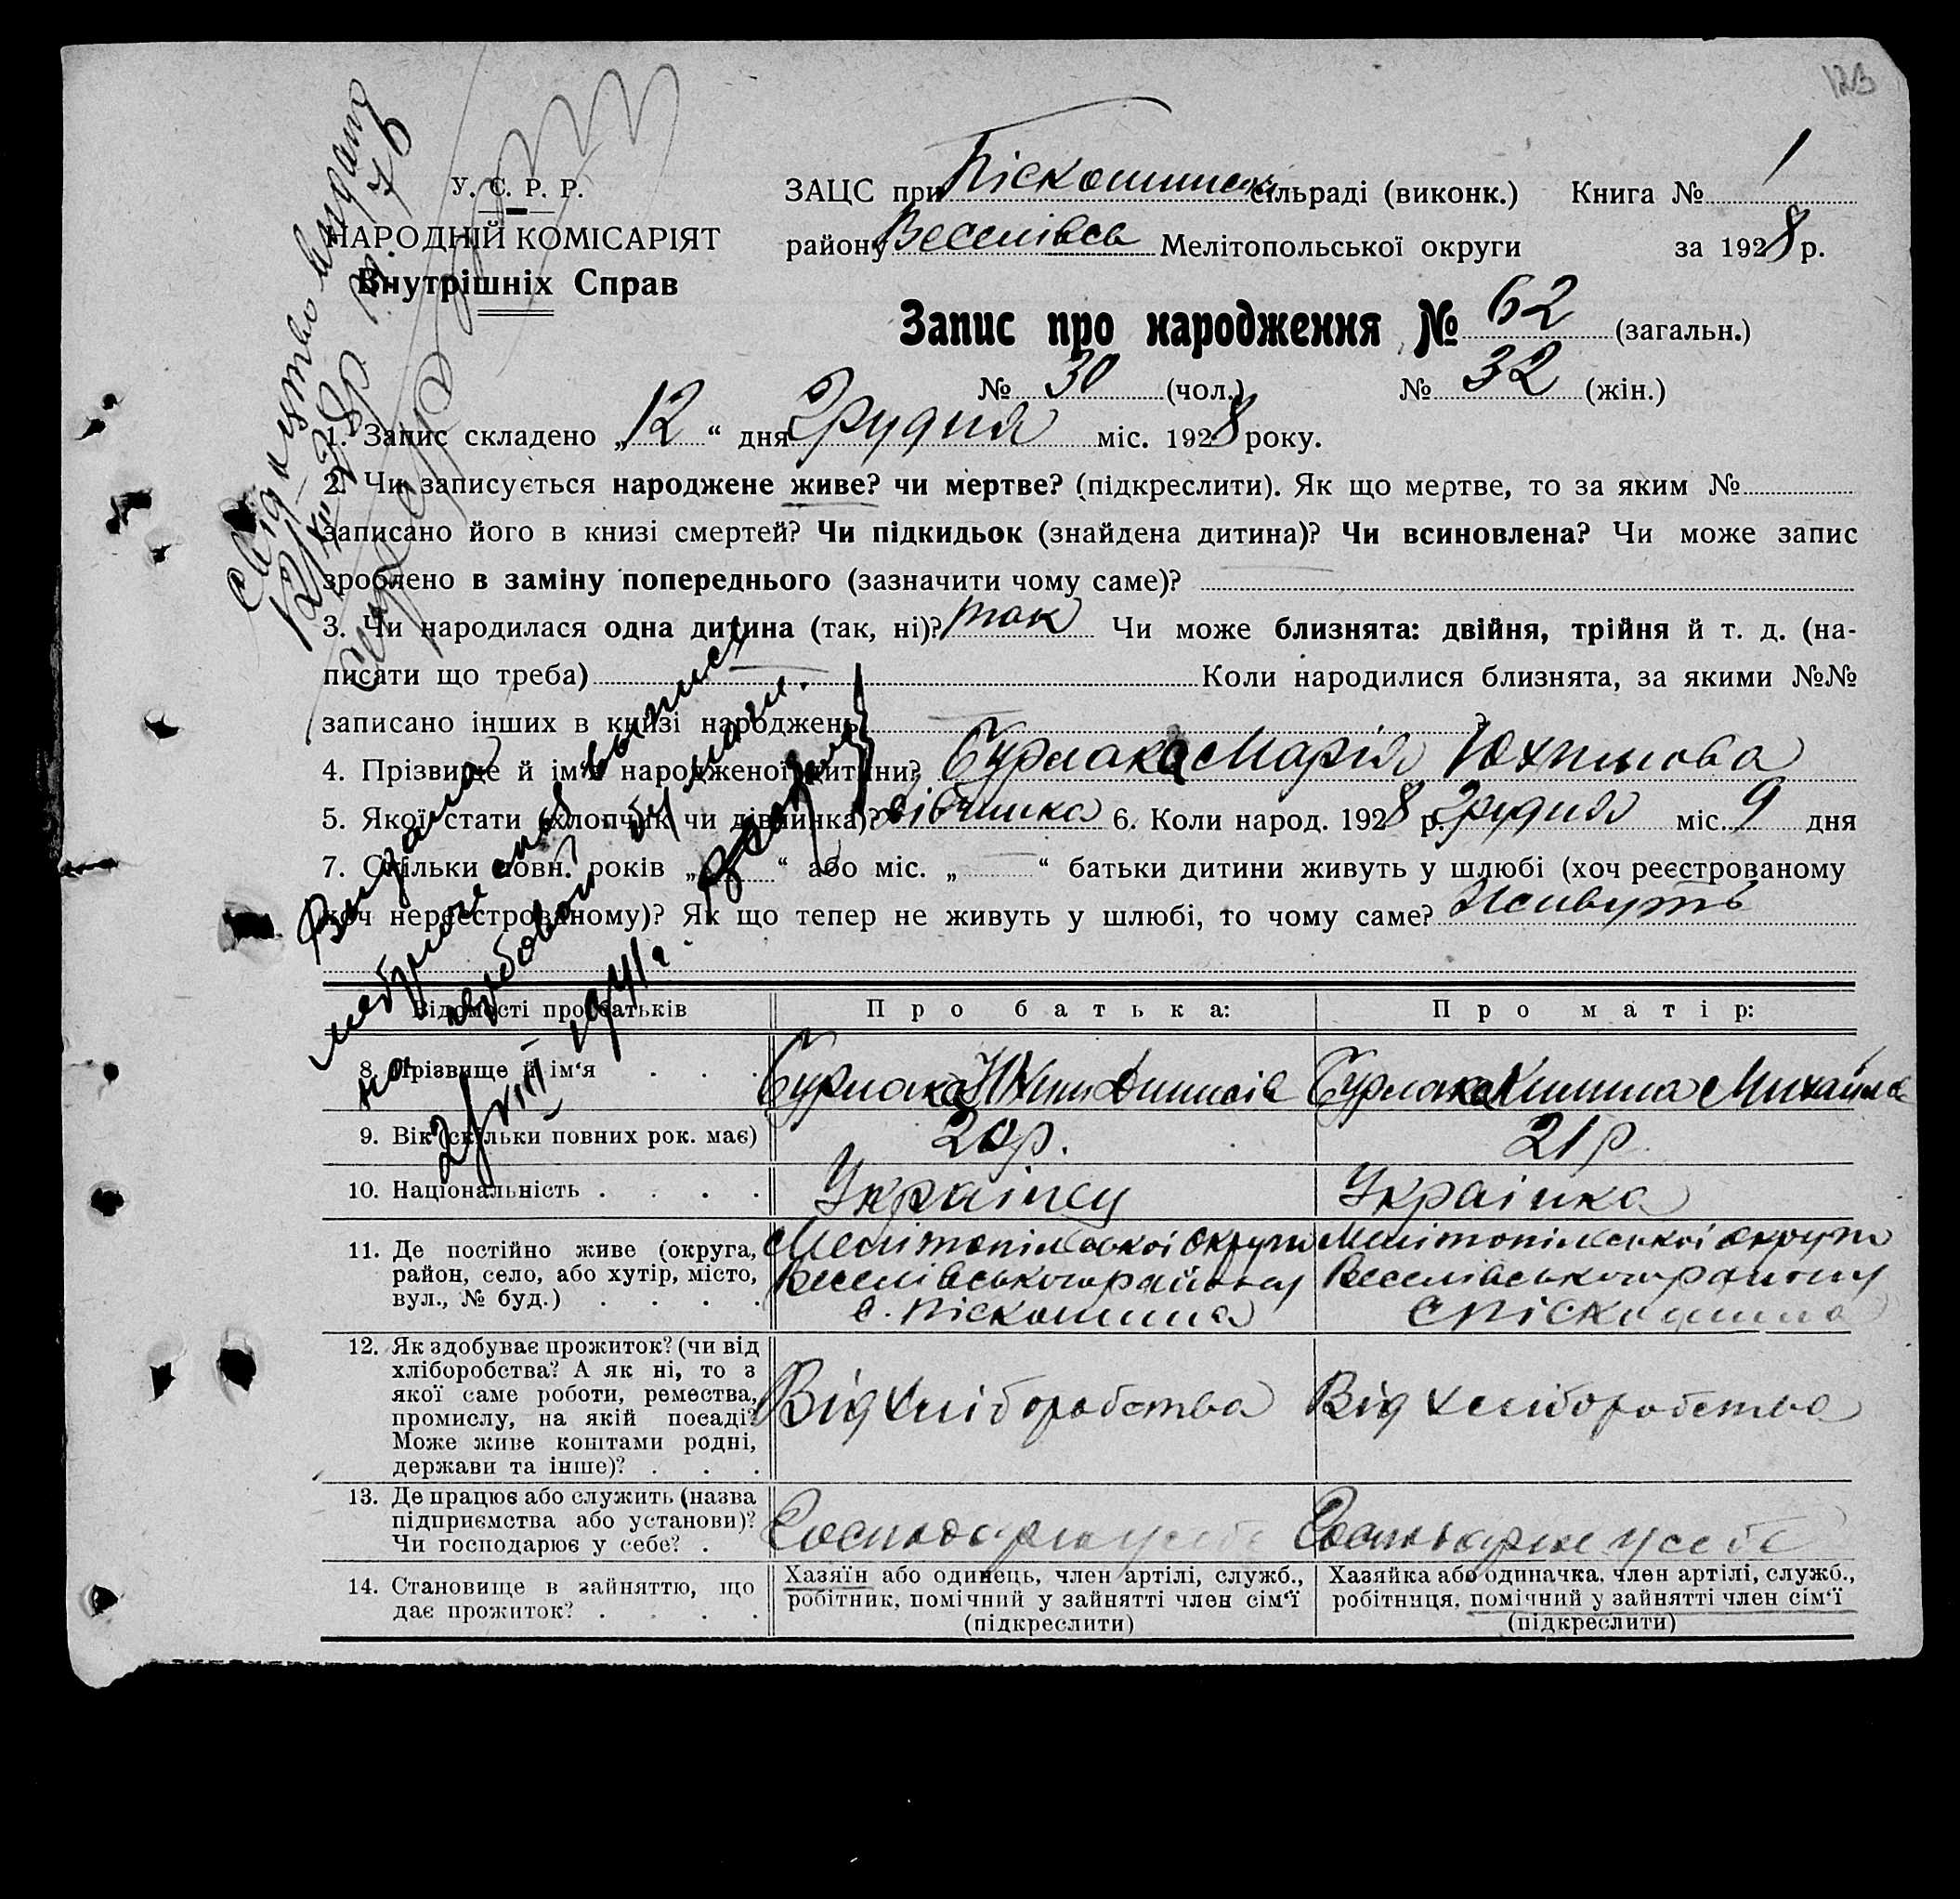 123
У. С. Р. Р.
НАРОДНІЙ КОМІСАРІЯТ
Внутрішніх Справ
ЗАЦС при Піскошинск сільраді (виконк.) Книга № 1
району Веселівсь Мелітопольської округи за 1928 р.
Запис про народження № 62 (загальн.)
№ 30 (чол.) № 32 (жін.)
1. Запис складено „12“ дня Грудня міс. 1928 року.
2. Чи записується народжене живе? чи мертве? (підкреслити). Як що мертве, то за яким №
записано його в книзі смертей? Чи підкидьок (знайдена дитина)? Чи всиновлена? Чи може запис
зроблено в заміну попереднього (зазначити чому саме)?
3. Чи народилася одна дитина (так, ні)? так Чи може близнята: двійня, трійня й т. д. (на-
писати що треба) Коли народилися близнята, за якими №№
записано інших в книзі народжень
4. Прізвище й ім‘я народженої дитини? Бурлака Марія Юхимова
5. Якої стати (хлопчик чи дівчинка)? дівчинка 6. Коли народ. 1928 р. Грудня міс. 9 дня
7. Скільки повн. років „ “ або міс. „ “ батьки дитини живуть у шлюбі (хоч реєстрованому
хоч нереєстрованому)? Як що тепер не живуть у шлюбі, то чому саме? Живуть
Свідоцтво видано
12/XII-28р. № 76
Выдана
выписка
на
2/VIII 1941 г.
Відомості про батьків Про батька: Про матір:
8. Прізвище й ім‘я Бурлака Юхим Бурлака Михайлов
9. Вік (скільки повних рок. має) 20р. 21р
10. Національність Українец Українка
11. Де постійно живе (округа, район, село, або хутір, місто, вул., № буд.)
Мелітопільської округи Мелітопільської округи
Веселівського району Веселівського району
с. Піскошина с Піскошина
12. Як здобуває прожиток? (чи від
хліборобства? А як ні, то з
якої саме роботи, ремества,
промислу, на якій посаді?
Може живе коштами родні,
держави та інше)?
Від хліборобства Від хліборобства
13. Де працює або служить (назва
підприємства або установи)?
Чи господарює у себе?
Господарює у себе Господарює у себе
14. Становище в зайняттю, що
дає прожиток?
Хазяїн або одинець, член артілі, служб.,
робітник, помічний у зайнятті член сім‘ї
(підкреслити)
Хазяйка або одиначка, член артілі, служб.,
робітниця, помічний у зайнятті член сім‘ї
(підкреслити)